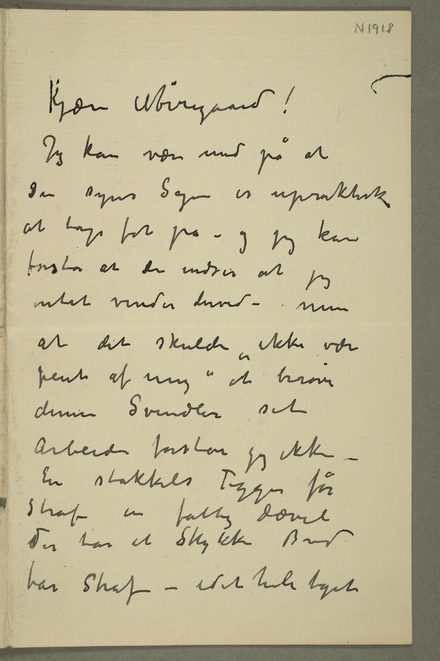 N 1918
Kjære Nørregaard!
Jeg kan være med på at
De synes Sagen er upraktisk
at tage fat på – og jeg kan
forstå at De indser at jeg
intet vinder derved – men
at det skulde "ikke være
pent af mig" at berøve
denne Svindler sit
Arbeide forstår jeg ikke –
En stakkels Tigger får
Straf en fattig Dævel
Der tar et Stykke Brød
har Straf – idet hele taget